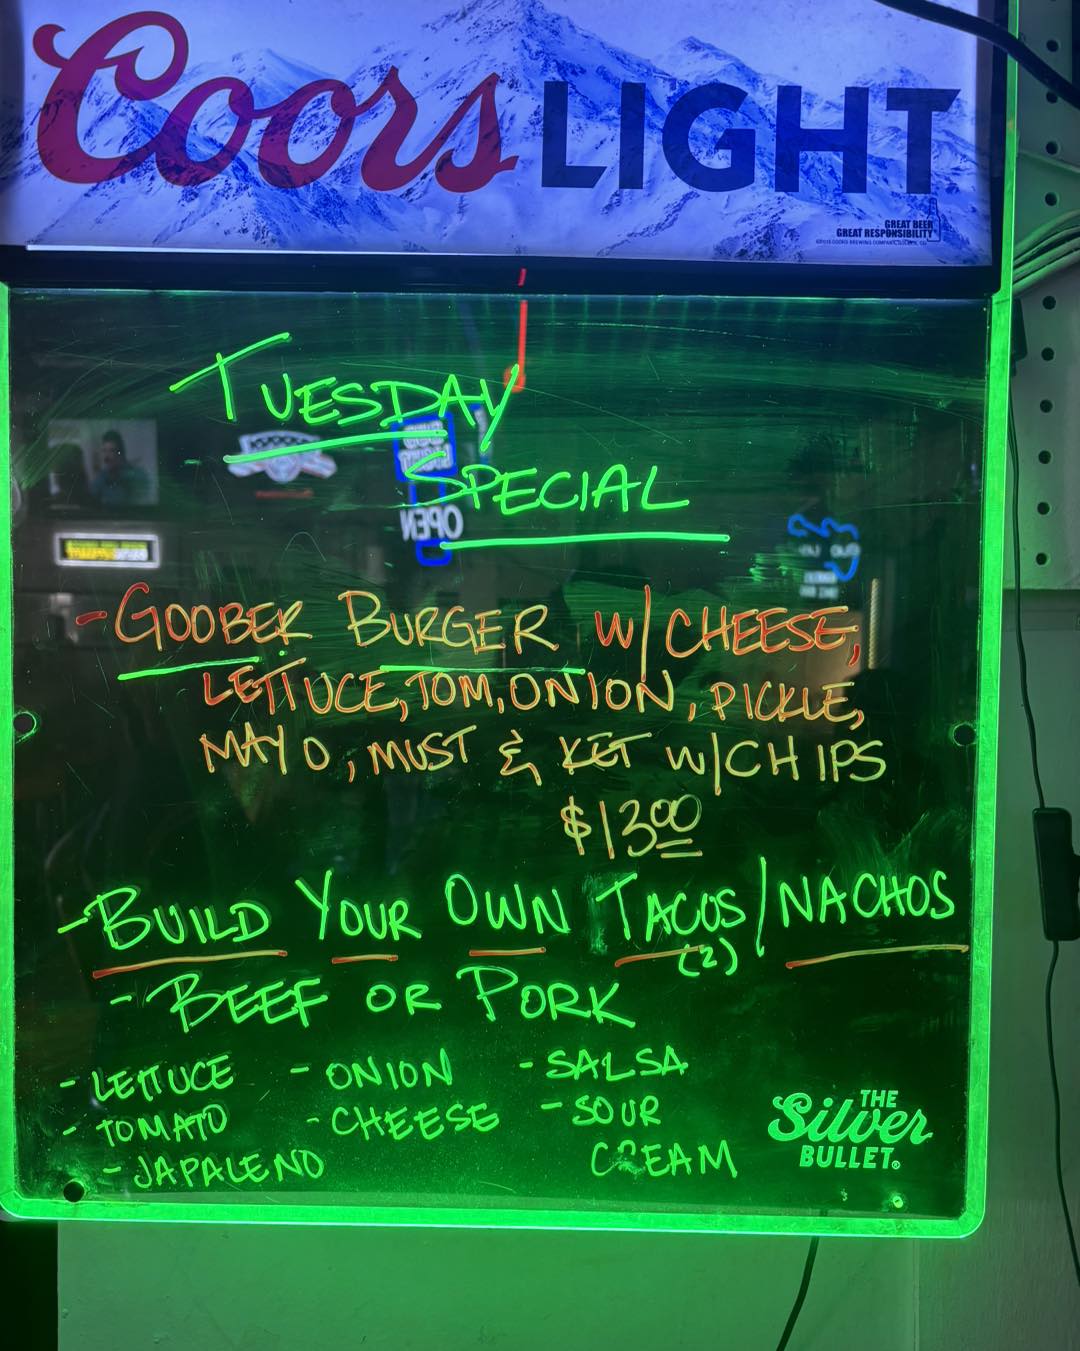 Coors LIGHT
GREAT BEER
GREAT RESPONSIBILITY
TUESDAY
SPECIAL
OPEN
- GOOBER BURGER W/ CHEESE,
LETTUCE, TOM, ONION, PICKLE,
MAYO, MUST & KET W/CHIPS
$13.00
- BUILD YOUR OWN TACOS/NACHOS
(2)
- BEEF OR PORK
- LETTUCE - ONION - SALSA
- TOMATO - CHEESE - SOUR
- JAPALENO CREAM
THE
Silver
BULLET®